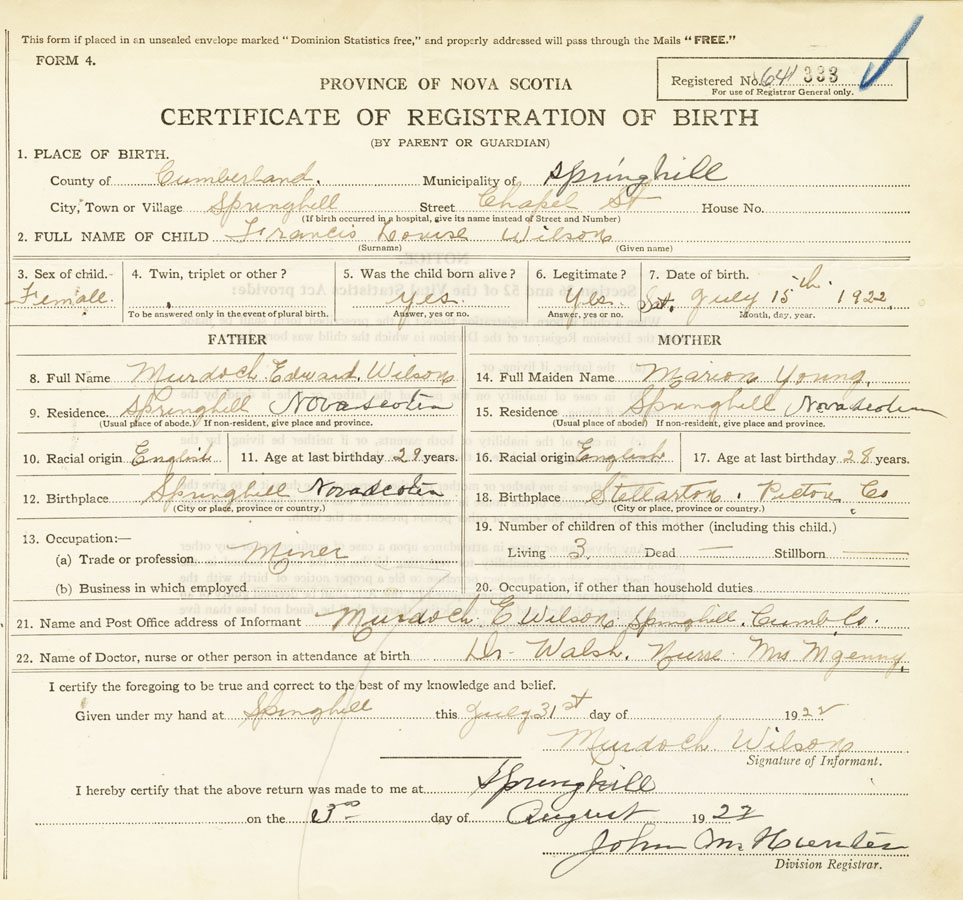 This form if placed in an unsealed envelope marked "Dominion Statistics free," and properly addressed will pass through the Mails "FREE."
FORM 4.
Registered No. 641 333
For use of Registrar General only.
PROVINCE OF NOVA SCOTIA
CERTIFICATE OF REGISTRATION OF BIRTH
(BY PARENT OR GUARDIAN)
1. PLACE OF BIRTH.
County of Cumberland. Municipality of Springhill
City, Town or Village Springhill Street Chapel St House No.
(If birth occurred in a hospital, give its name instead of Street and Number)
2. FULL NAME OF CHILD Francis Louise Wilson
(Surname) (Given name)
3. Sex of child. 4. Twin, triplet or other? 5. Was the child born alive? 6. Legitimate? 7. Date of birth.
Female. Yes. Yes. Sat. July 15th 1922
To be answered only in the event of plural birth. Answer, yes or no. Answer, yes or no. Month, day, year.
FATHER MOTHER
8. Full Name Murdoch Edward Wilson 14. Full Maiden Name Marion Young.
9. Residence. Springhill Nova Scotia 15. Residence Springhill Nova Scotia
(Usual place of abode.) If non-resident, give place and province. (Usual place of abode) If non-resident, give place and province.
10. Racial origin English 11. Age at last birthday 29 years. 16. Racial origin English 17. Age at last birthday 28 years.
12. Birthplace Springhill Nova Scotia 18. Birthplace Stellarton. Pictou Co
(City or place, province or country.) (City or place, province or country.)
13. Occupation:— 19. Number of children of this mother (including this child.)
(a) Trade or profession Miner Living 3 Dead — Stillborn —
(b) Business in which employed 20. Occupation, if other than household duties
21. Name and Post Office address of Informant Murdoch. E Wilson Springhill. Cumb. Co.
22. Name of Doctor, nurse or other person in attendance at birth Dr. Walsh. Nurse Mrs
I certify the foregoing to be true and correct to the best of my knowledge and belief.
Given under my hand at Springhill this July 31st day of 1922
Murdoch Wilson
Signature of Informant.
I hereby certify that the above return was made to me at Springhill
on the 3rd day of August 1922
John
Division Registrar.